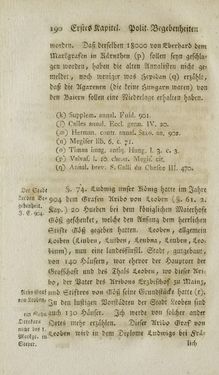 190 Erstes Kapitel. Polit. Begebenheiten
worden. Daß derselben 18000 von Eberhard dem
Markgrafen in Kärnthen (p) sollen seyn geschla-
gen worden, haben die alten Annalisten nicht ge-
meldet, noch weniger was Hepidan (q) erzählt,
daß die Agarenen (die keine Hungarn waren) von
den Baiern sollen eine Niederlage erhalten haben.
(k) Supplem. annal. Fuld. 901.
(l) Calles annal. Eccl. germ. IV. 20.
(m) Herman. contr. annal. Saec. an. 901.
(n) Megiser lib. 6. c. 71.
(o) Timon imag. antiq. Hung. l. 3. c. 3.
(p) Valvas. l. 10. chron. Megis. cit.
(q) Annal. brev. S. Galli du Chesne III. 470.
Der Stadt
Leoben Be-
freyheit.
J. C. 904.
§. 74. Ludwig unser König hatte im Jahre
904 dem Grafen Aribo von Leoben (§. 61. 2.
Kap.) 20 Hueben bey dem
Göß geschenket, welche den Anfang dem herrlichen
Stifte Göß gegeben haben. Leoben, allgemein
(Loiben, Leuben, Leubn, Luoben, Liuben, Leuben,
Liubna), nun eine landesfürstl. Stadt, gutgebauet,
von 140 Häusern, war ehedem der Hauptort der
Grafschaft und des Thals Leoben, wo dieser Aribo,
der Vater des Aribons Erzbischof zu Mainz,
und Stifters von Göß seine Grundstücke hatte (r).
Zu den lustigen Vorstädten der Stadt Leoben sind
auch 130 Häuser. Ich werde von solcher ander
Orten mehr erzählen. Dieser Aribo Graf von
Leoben wird in dem Diplome Ludwigs bis Frä-
lich
Aribo Graf
von Leoben,